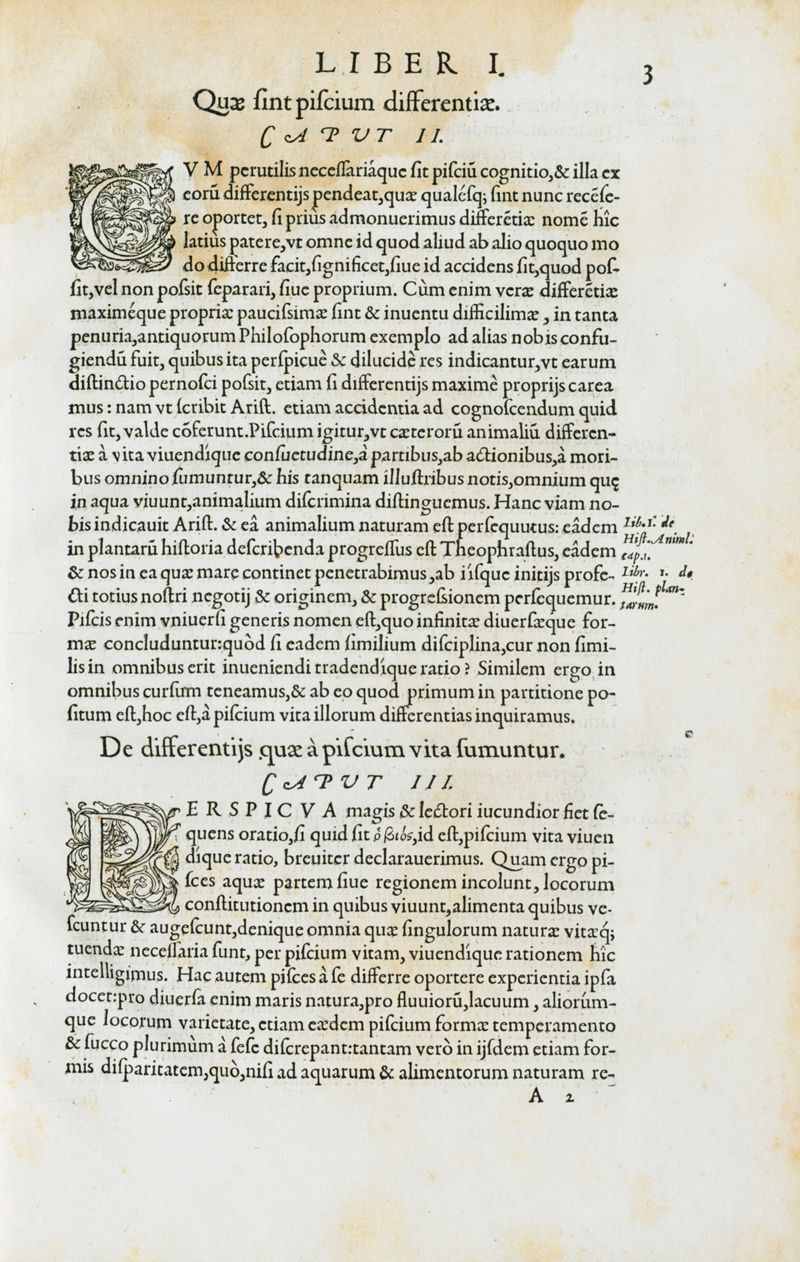 LIBER I.
3
Quæ ſint piſcium differentiæ.
CAPUT II.
CVM perutilis neceſſariáque ſit piſciū cognitio,& illa ex
eorū differentijs pendeat,quæ qualéſq; ſint nunc recēſe-
re oportet, ſi priùs admonuerimus differētiæ nomē hîc
latiùs patere,vt omne id quod aliud ab alio quoquo mo
do differre facit,ſignificet,ſiue id accidens ſit,quod poſ-
ſit,vel non poſsit ſeparari, ſiue proprium. Cùm enim veræ differētiæ
maximéque propriæ pauciſsimæ ſint & inuentu difficilimæ, in tanta
penuria,antiquorum Philoſophorum exemplo ad alias nobis confu-
giendū fuit, quibus ita perſpicuè & dilucidè res indicantur,vt earum
diſtinctio pernoſci poſsit, etiam ſi differentijs maximè proprijs carea
mus: nam vt ſcribit Ariſt. etiam accidentia ad cognoſcendum quid
res ſit, valde cōferunt.Piſcium igitur,vt cæterorū animaliū differen-
tiæ à vita viuendíque conſuetudine,à partibus,ab actionibus,à mori-
bus omnino ſumuntur,& his tanquam illuſtribus notis,omnium quę
in aqua viuunt,animalium diſcrimina diſtinguemus. Hanc viam no-
bis indicauit Ariſt. & eâ animalium naturam eſt perſequutus: eâdem
Lib.1. de
Hiſt. Animl.
cap.1.
in plantarū hiſtoria deſcribenda progreſſus eſt Theophraſtus, eâdem
& nos in ea quæ mare continet penetrabimus,ab iíſque initijs profe-
Libr. 1. de
Hiſt. plan-
tarum.
cti totius noſtri negotij & originem, & progreſsionem perſequemur.
Piſcis enim vniuerſi generis nomen eſt,quo infinitæ diuerſæque for-
mæ concluduntur:quòd ſi eadem ſimilium diſciplina,cur non ſimi-
lis in omnibus erit inueniendi tradendíque ratio? Similem ergo in
omnibus curſum teneamus,& ab eo quod primum in partitione po-
ſitum eſt,hoc eſt,à piſcium vita illorum differentias inquiramus.
De differentijs quæ à piſcium vita ſumuntur.
CAPUT III.
PERSPICVA magis & lectori iucundior fiet ſe-
quens oratio,ſi quid ſit ὁ βιός,id eſt,piſcium vita viuen
díque ratio, breuiter declarauerimus. Quam ergo pi-
ſces aquæ partem ſiue regionem incolunt, locorum
conſtitutionem in quibus viuunt,alimenta quibus ve-
ſcuntur & augeſcunt,denique omnia quæ ſingulorum naturæ vitæq;
tuendæ neceſſaria ſunt, per piſcium vitam, viuendíque rationem hîc
intelligimus. Hac autem piſces à ſe differre oportere experientia ipſa
docet:pro diuerſa enim maris natura,pro fluuiorū,lacuum, aliorúm-
que locorum varietate, etiam eædem piſcium formæ temperamento
& ſucco plurimùm à ſeſe diſcrepant:tantam verò in ijſdem etiam for-
mis diſparitatem,quò,niſi ad aquarum & alimentorum naturam re-
A 2